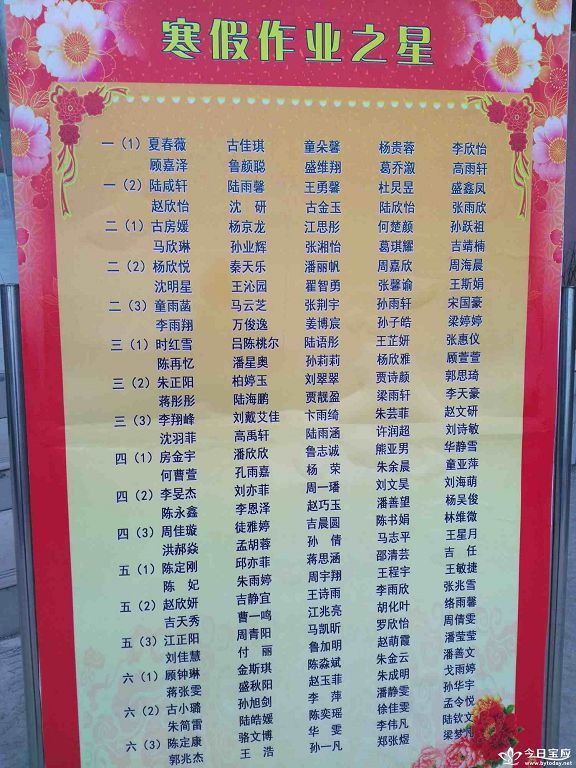 寒假作业之星
一（1）夏春薇 古佳琪 童朵馨 杨贵蓉 李欣怡
顾嘉泽 鲁颜聪 盛维翔 葛乔溆 高雨轩
一（2）陆咸轩 陆雨馨 王勇馨 杜炅昱 盛鑫凤
赵欣怡 沈 研 古金玉 陆欣怡 张雨欣
二（1）古房媛 杨京龙 江思彤 何楚颜 孙跃祖
马欣琳 孙业辉 张湘怡 葛琪耀 吉靖楠
二（2）杨欣悦 秦天乐 潘丽帆 周嘉欣 周海晨
沈明星 王沁园 翟智勇 张馨谕 王斯娟
二（3）童雨菡 马云芝 张荆宇 孙雨轩 宋国豪
李雨翔 万俊逸 姜博宸 孙子皓 梁婷婷
三（1）时红雪 吕陈桃尔 陆语彤 王芷妍 张惠仪
陈再忆 潘星奥 孙莉莉 杨欣雅 顾萱萱
三（2）朱正阳 柏婷玉 刘翠翠 贾诗颜 郭思琦
蒋彤彤 陆海鹏 贾靓盈 梁雨轩 李天豪
三（3）李翔峰 刘戴艾佳 卞雨绮 朱芸菲 赵文研
沈羽菲 高禹轩 陆雨涵 许润超 刘诗敏
四（1）房金宇 潘欣欣 鲁志诚 熊亚男 华静雪
何曹萱 孔雨嘉 杨 荣 朱余晨 童亚萍
四（2）李旻杰 刘亦菲 周一璠 刘文昊 刘海萌
陈永鑫 李恩泽 赵巧玉 潘善望 杨吴俊
四（3）周佳璇 徒雅婷 吉晨圆 陈书娟 林维微
洪郝焱 孟胡蓉 孙 倩 马志平 王星月
五（1）陈定刚 邱亦菲 蒋思涵 邵清芸 吉 任
陈 妃 朱雨婷 周宇翔 王程宇 王敏捷
五（2）赵欣妍 吉静宜 王诗雨 李雨欣 张兆雪
吉天秀 曹一鸣 江兆亮 胡化叶 络雨馨
五（3）江正阳 周青阳 马凯昕 罗欣怡 周倩雯
刘佳慧 付 丽 鲁加明 赵萌霞 潘莹莹
六（1）顾钟琳 金斯琪 陈淼斌 朱金云 潘善文
蒋张雯 盛秋阳 赵玉菲 朱成明 戈雨婷
六（2）古小璐 孙旭剑 李 萍 潘静雯 孙华宇
朱简雷 陆皓媛 陈奕瑶 徐佳雯 孟令悦
六（3）陈定康 骆文博 华 雯 李伟凡 陆钦文
郭兆杰 王 浩 孙一凡 郑张煜 梁梦凡
今日宝应
www.bytoday.net